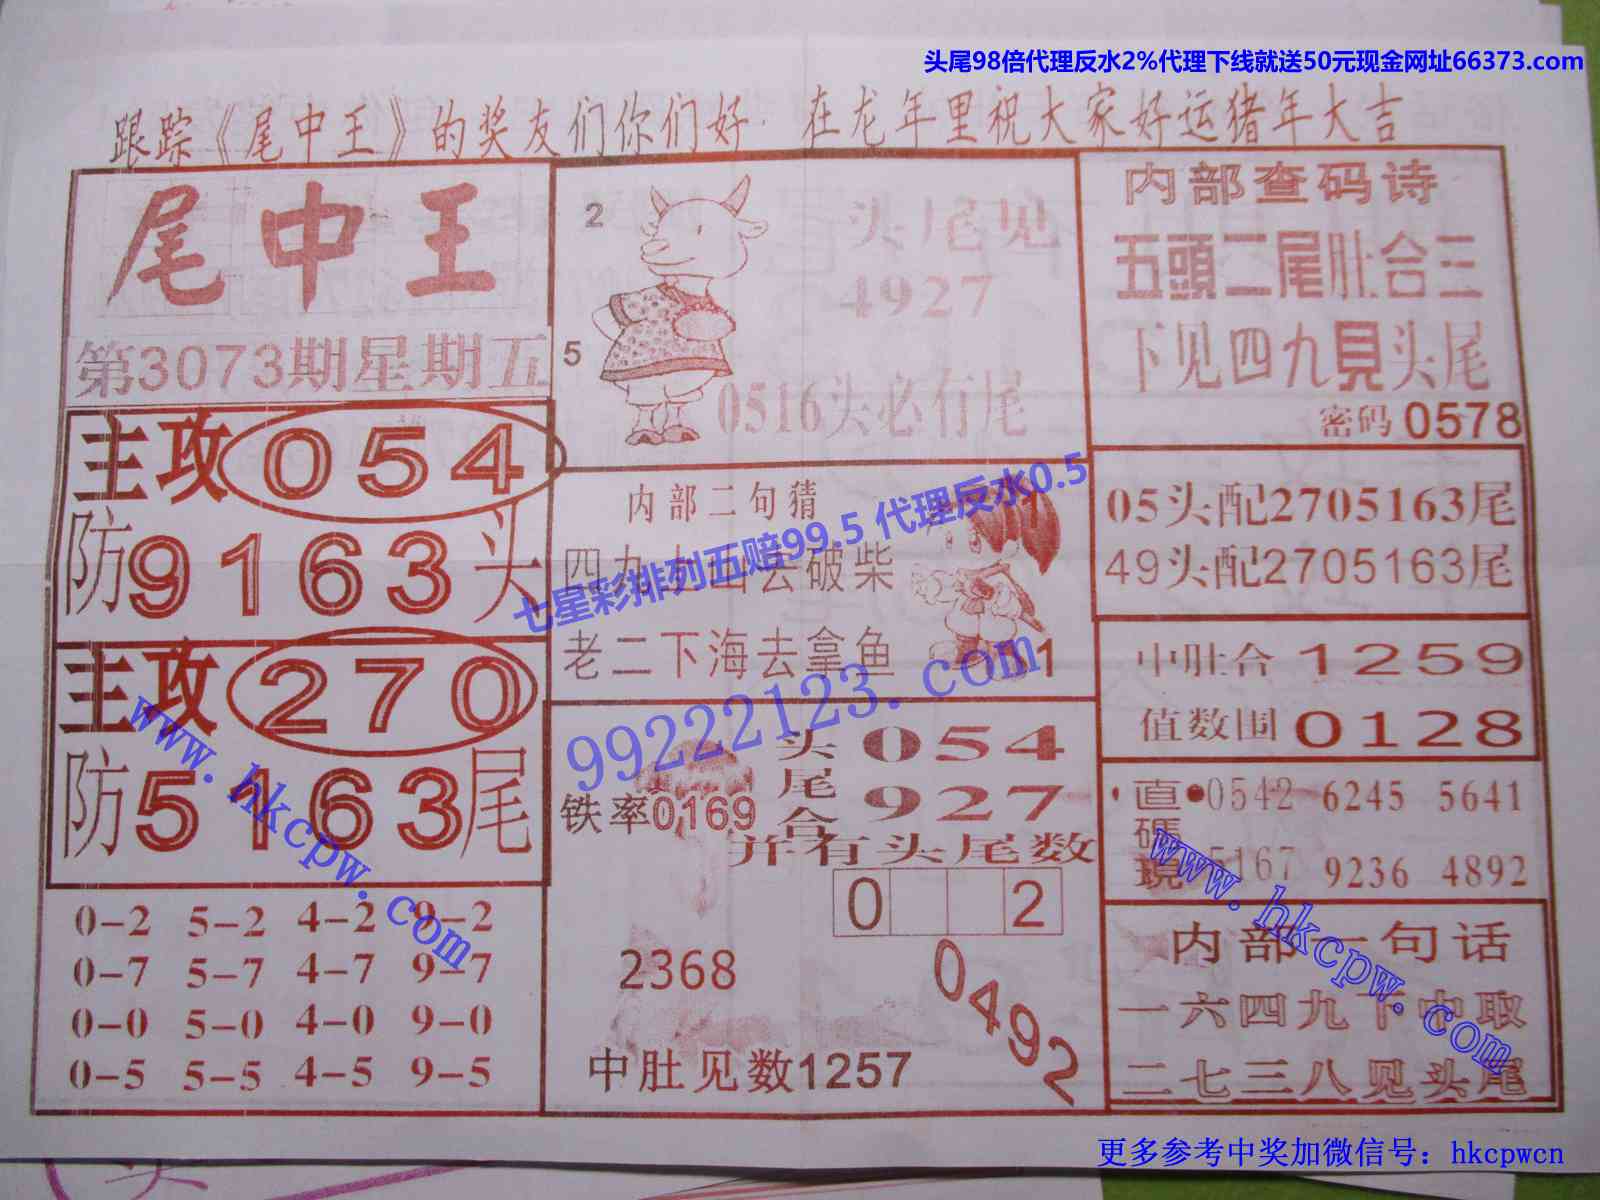 头尾98倍代理反水2%代理下线就送50元现金网址66373.com
跟踪《尾中王》的奖友们你们好. 在龙年里祝大家好运猪年大吉
尾中王
第3073期星期五
主攻 054
防9163头
主攻 270
防5163尾
0-2 5-2 4-2 9-2
0-7 5-7 4-7 9-7
0-0 5-0 4-0 9-0
0-5 5-5 4-5 9-5
2
5
头尾见
4927
0516头必有尾
内部二句猜
四九上山去破柴
老二下海去拿鱼
11
七星彩排列五赔99.5 代理反水0.5
99222123.com
铁率0169
头尾合
054
927
并有头尾数
0 2
2368
0492
中肚见数1257
内部查码诗
五頭二尾肚合三
下见四九見头尾
密码 0578
05头配2705163尾
49头配2705163尾
中肚合 1259
值数围 0128
直碼現
0542 6245 5641
5167 9236 4892
内部一句话
一六四九下中取
二七三八见头尾
www.hkcpw.com
www.hkcpw.com
更多参考中奖加微信号：hkcpwcn